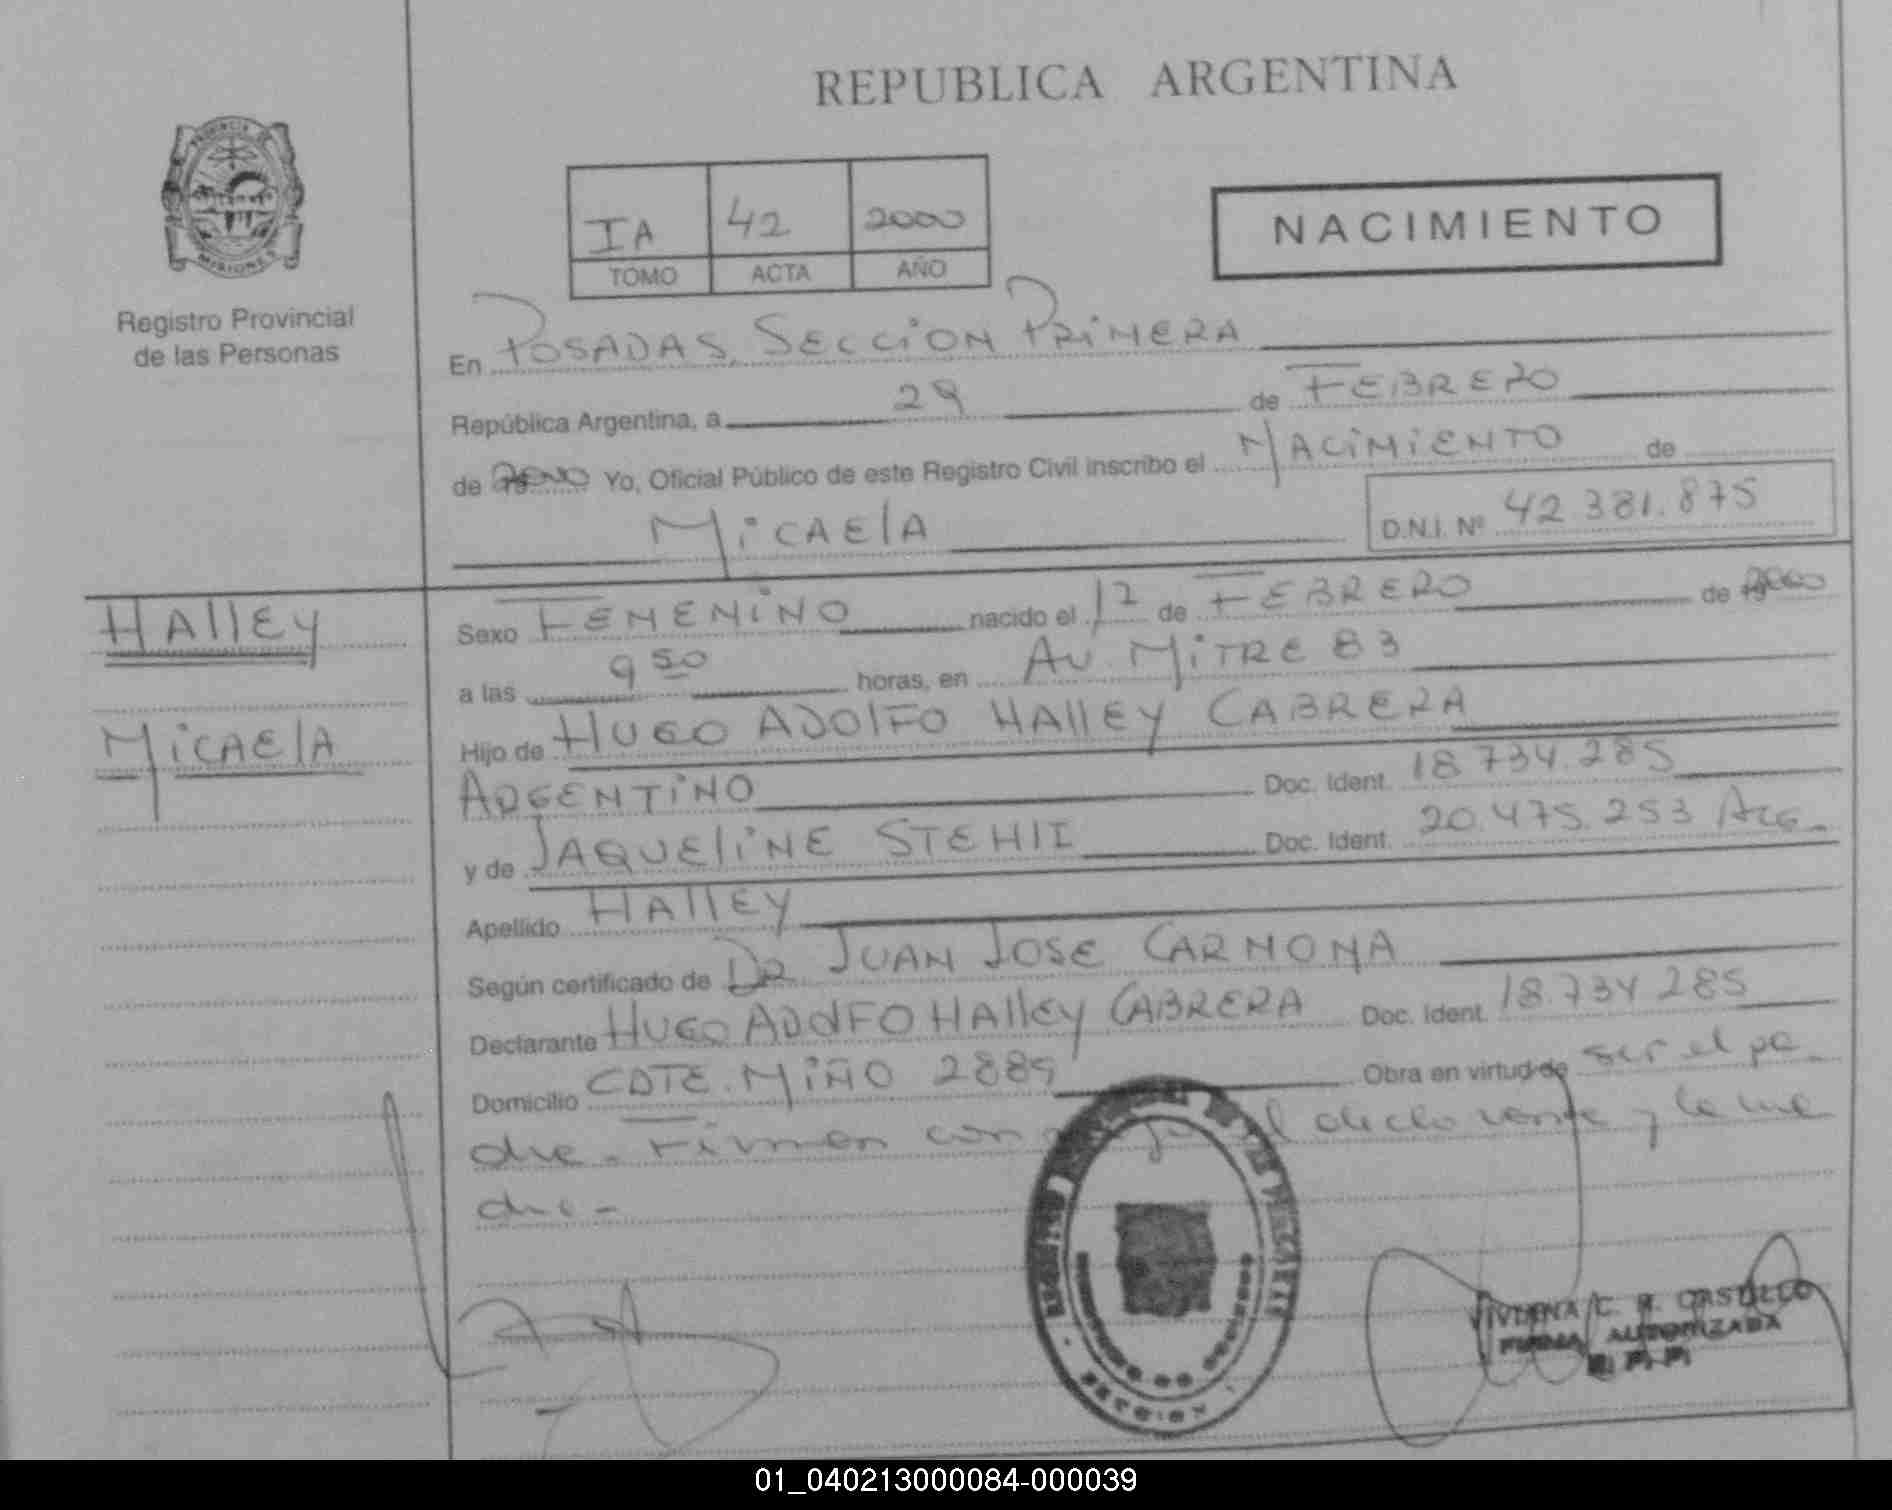 REPUBLICA ARGENTINA
PROVINCIA DE
MISIONES
Registro Provincial
de las Personas
IA 42 2000
TOMO ACTA AÑO
NACIMIENTO
En POSADAS, SECCION PRIMERA
República Argentina, a 29 de FEBRERO
de 2000 Yo, Oficial Público de este Registro Civil inscribo el NACIMIENTO de
MICAElA D.N.I. Nº 42.381.875
HAllEY
MICAElA
Sexo FEMENINO nacido el 17 de FEBRERO de 2000
a las 9 50 horas, en AV. MITRE 83
Hijo de HUGO ADOlFO HAllEY CABRERA
ARGENTINO Doc. Ident. 18.734.285
y de JAQUElINE STEHlI Doc. Ident. 20.475.253 ARG.
Apellido HAllEY
Según certificado de DR JUAN JOSE CARMONA
Declarante HUGO ADOlFO HAllEY CABRERA Doc. Ident. 18.734.285
Domicilio CDTE. MIÑO 2889 Obra en virtud de ser el pa
dre. Firman conmigo el declarante y la ma
dre-
C. R. CASTILLO
FIRMA AUTORIZADA
R. P. P.
01_040213000084-000039